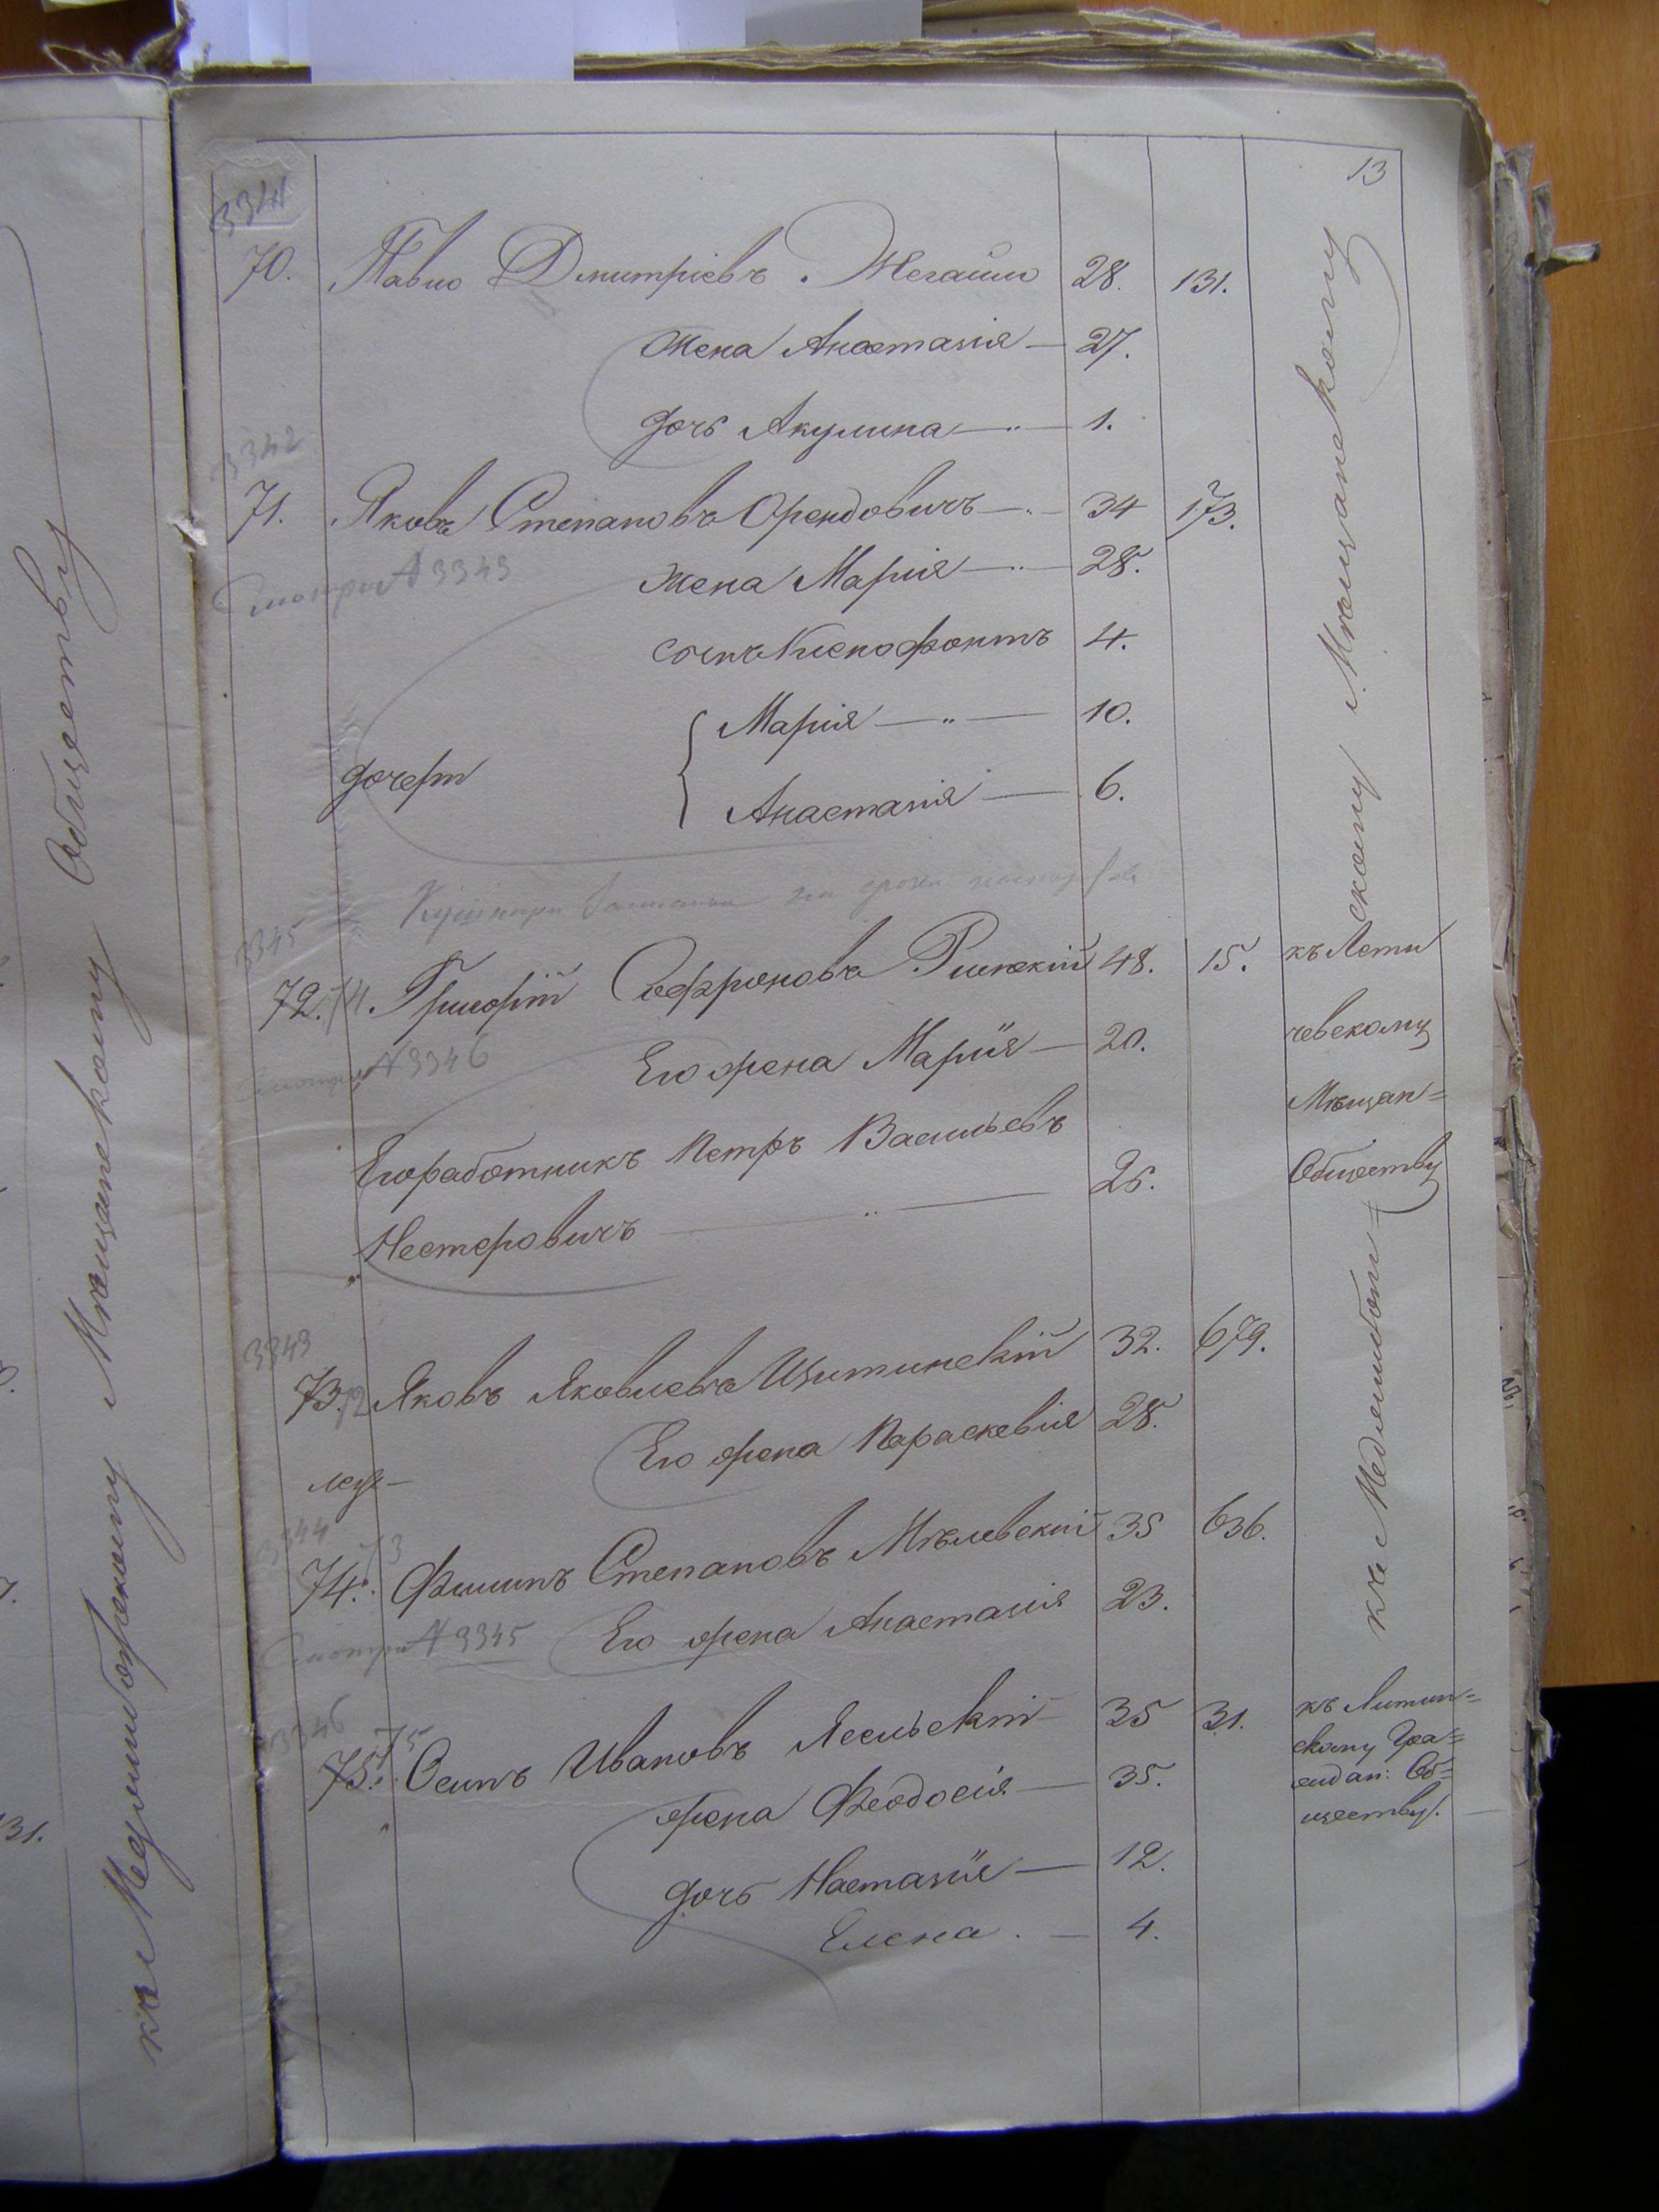 13
3341
70. Павло Дмитріевъ Жегайло 28. 131.
Жена Анастазія — 27.
Дочь Акулина — 1.
3342
71. Яковъ Степановъ Орендовичъ — 34 173.
Смотри № 3343
Жена Марія — 28.
сынъ Ксенофонтъ 4.
Марія — 10.
Дочери
Анастазія — 6.
на сроки
3345
72. 74. Григорій Софроновъ 48. 15. къ Лети
чевскому
Смотри № 3346
Его жена Марія — 20.
Мѣщан=
Его работникъ Петръ Васильевъ
Нестеровичъ — 25.
Обществу
3343
73. 72 Яковъ Яковлевъ 32. 679.
Его жена Параскевія 28.
3344
74. 73 Филипъ Степановъ Мѣлевскій 35 636.
Смотри № 3345
Его жена Анастазія 23.
3346
75. 75 Осипъ Ивановъ Лесльскій 35 31. къ Литин=
скому Гра=
ждан: Об=
ществу.
жена Феодосія — 35.
Дочь Настазія — 12.
Елена — 4.
къ Меджибож=
скому Мѣщанскому
къ Меджибожскому Мѣщанскому Обществу
31.